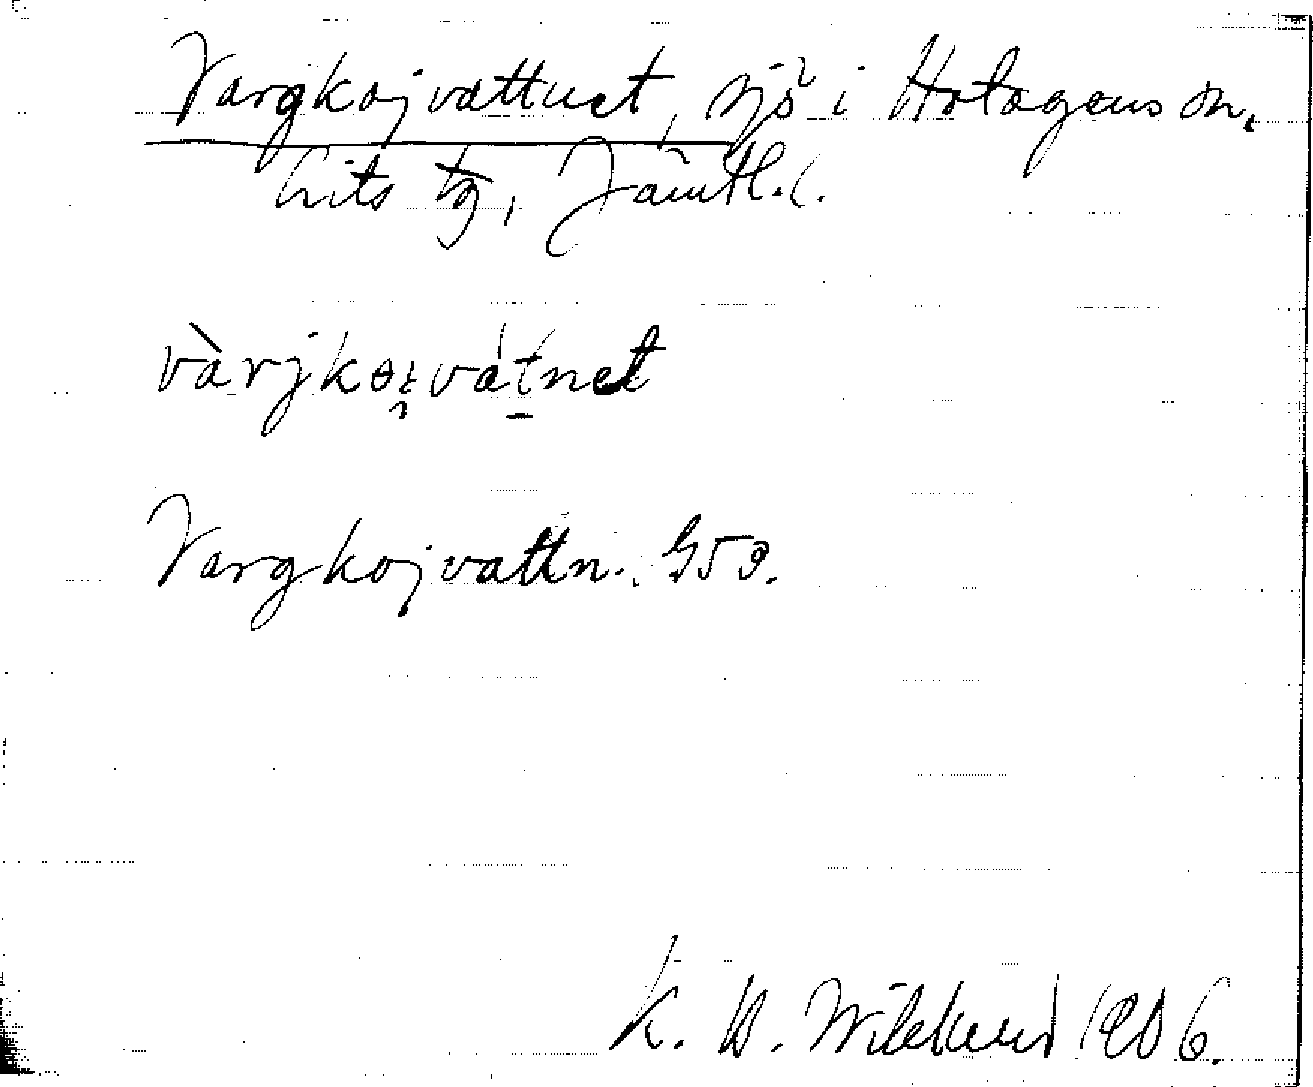 Vargkojvattnet, sjö i Hotagens sn,
Lits tg, Jämtl. l.
vàrjkɵi̯vátnet
Vargkojvattn. G59.
K. B. Wiklund 1906.